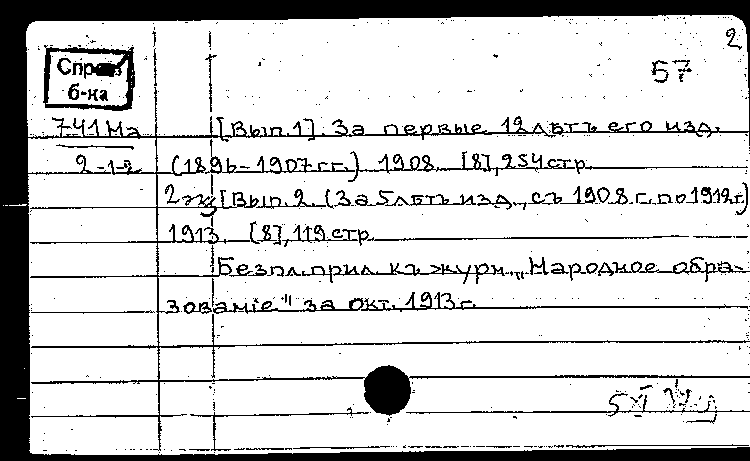 2
57
Справ
б-ка
741 На [Вып. 1]. За первые 12 лѣтъ его изд.
2-1-2 (1896-1907 гг.) 1908. [8], 254 стр.
2 эк [Вып. 2. (За 5 лѣтъ изд., съ 1908 г. по 1912 г)
1913. [8], 119 стр.
Безпл. прил. къ журн. „Народное обра-
зованіе" за окт. 1913 г.
5 XI 37